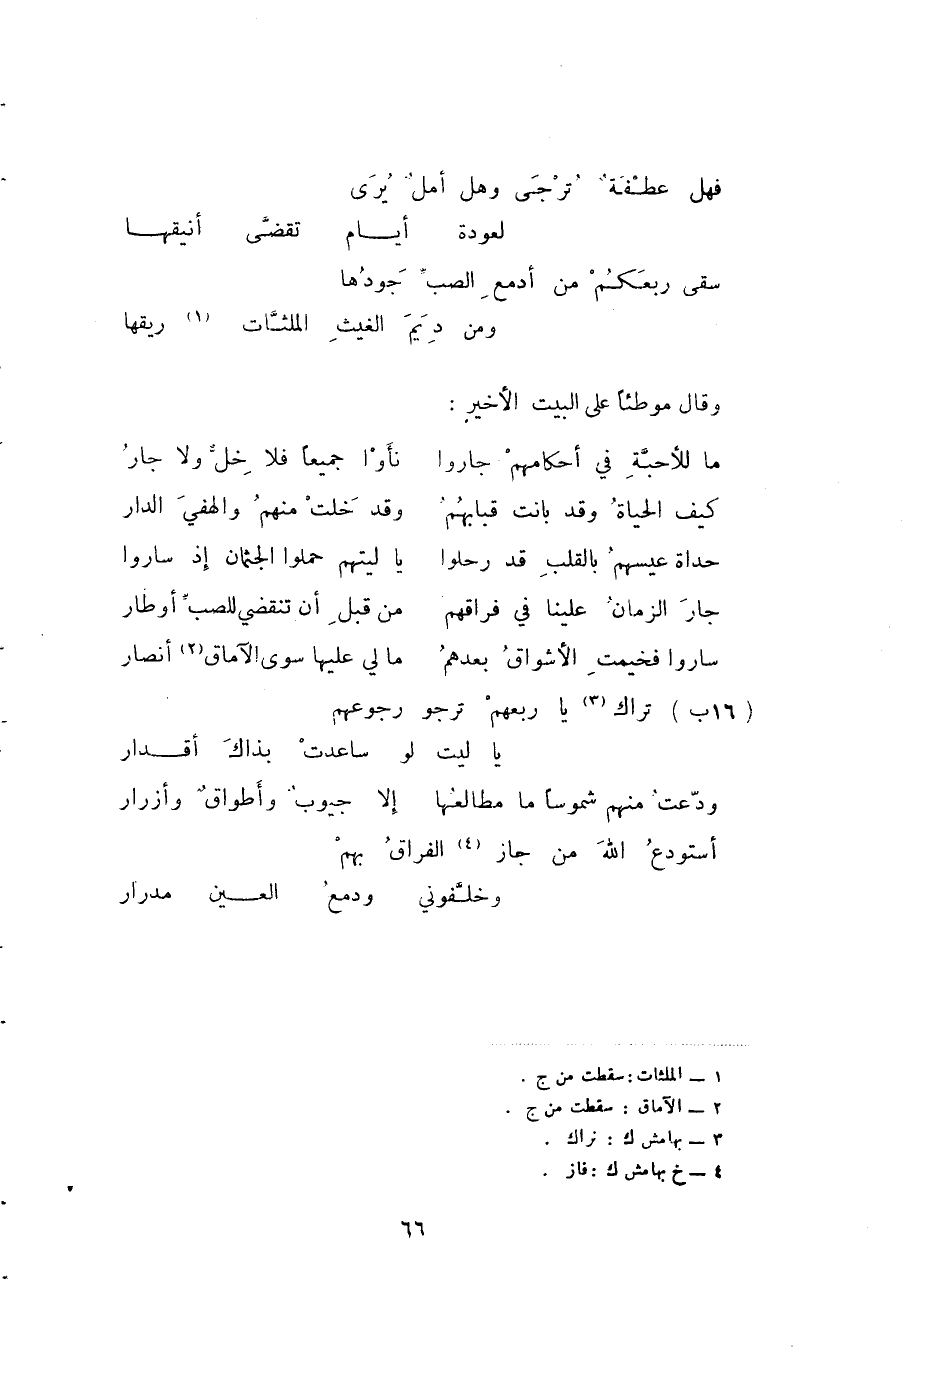 فهل عطْفَةٌ تُرْجَى وهل أملٌ يُرَى
لعودة أيـــام تقضَّى أنيقهـــا
سقى ربعَكمُ من أدمعِ الصبِّ جَودُها
ومن دِيَمَ الغيثِ الملثَّات (١) ريقها
وقال موطئاً على البيت الأخيرِ :
ما للأحبَّةِ في أحكامهمْ جاروا نأَوْا جميعاً فلا خِلٌّ ولا جارُ
كيف الحياةُ وقد بانت قبابهُمُ وقد خَلتْ منهمُ والهفيَ الدار
حداة عيسهمُ بالقلبِ قد رحلوا يا ليتهم حملوا الجثمان إذ ساروا
جارَ الزمانُ علينا في فراقهم من قبلِ أن تنقضي للصبِّ أوطار
ساروا فخيمتِ الأشواقُ بعدهمُ ما لي عليها سوى الآماق(٢) أنصار
( ١٦ب ) تراك (٣) يا ربعهمْ ترجو رجوعهم
يا ليت لو ساعدتْ بذاكَ أقـــدار
ودّعتُ منهم شموساً ما مطالعُها إلا جيوبٌ وأَطواقٌ وأزرار
أستودعُ اللهَ من جاز (٤) الفراقُ بهمْ
وخلَّفوني ودمعُ العـــين مدرار
١ – الملثات : سقطت من ج .
٢ – الآماق : سقطت من ج .
٣ – بهامش ك : نراك .
٤ – خ بهامش ك : فاز .
٦٦